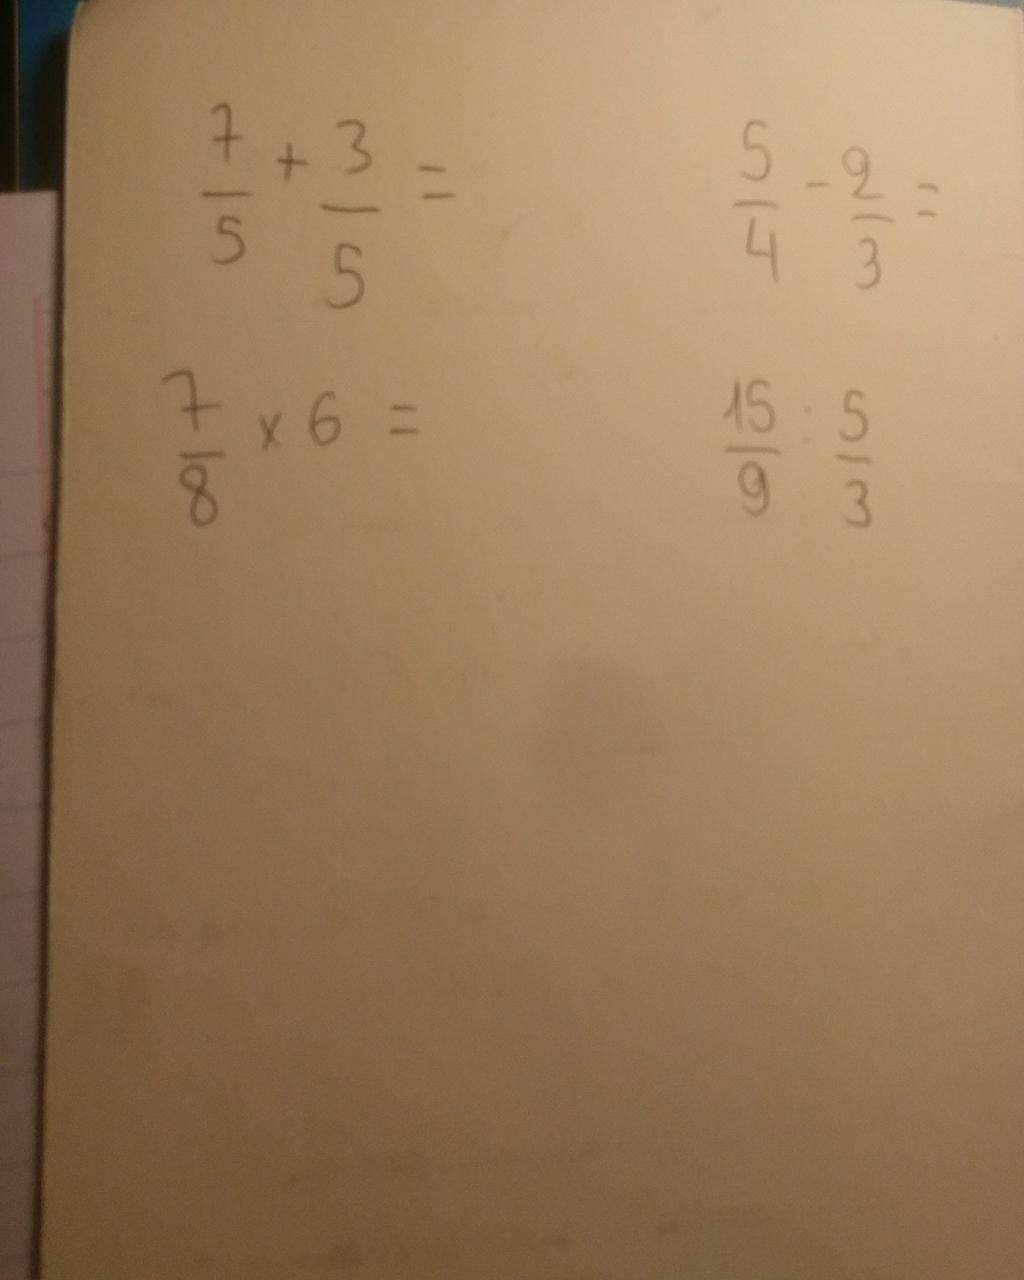 7/5 + 3/5 =
5/4 - 2/3 =
7/8 x 6 =
15/9 : 5/3